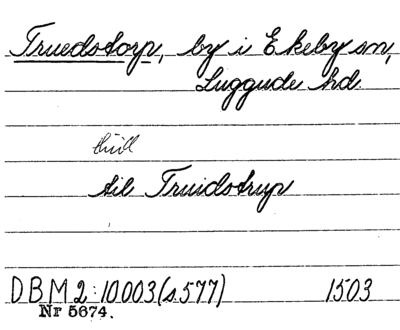 Truedstorp, by i Ekeby sn,
Luggude hd.
till
til Truidstrup
DBM 2:10003 (s.577) 1503
Nr 5674.